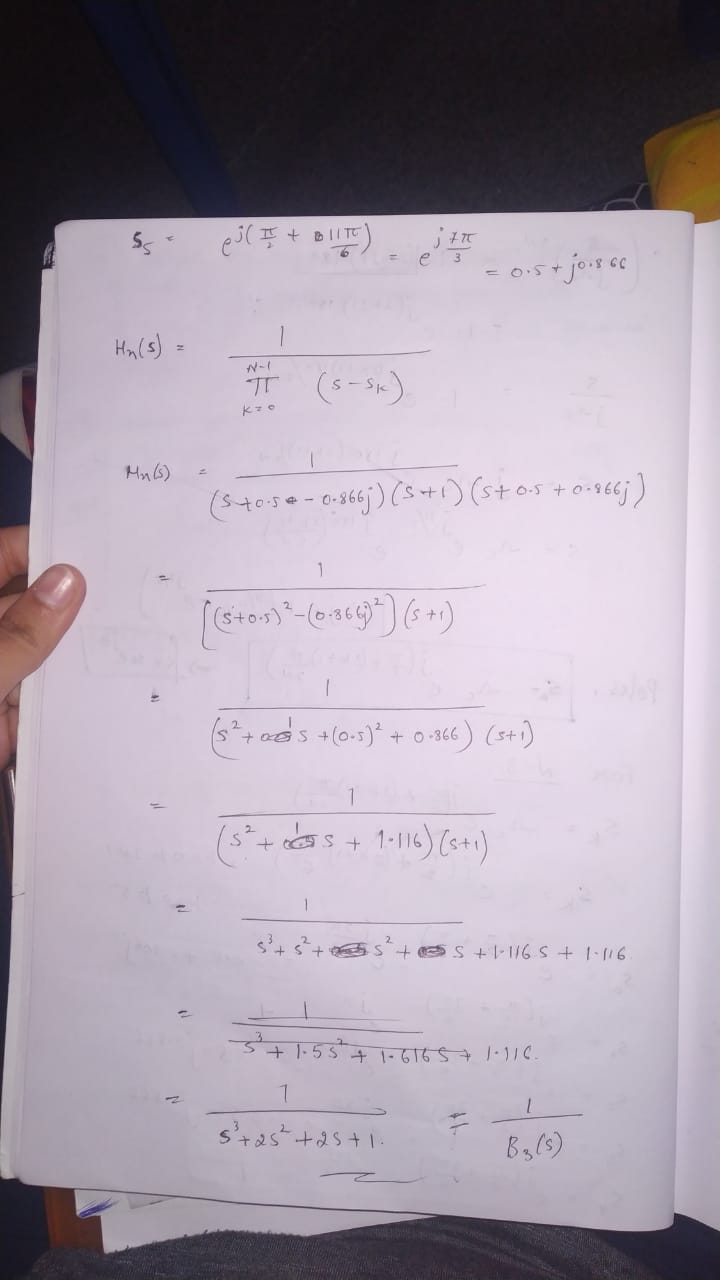 S₅ = e^{j(π/2 + 11π/6)} = e^{j 7π/3} = 0.5 + j0.866
Hn(s) = 1 / ∏_{k=0}^{N-1} (s - sₖ)
Hn(s) = 1 / (s+0.5 - 0.866j)(s+1)(s+0.5+0.866j)
= 1 / [(s+0.5)² - (0.866j)²](s+1)
= 1 / (s² + 1 s + (0.5)² + 0.866)(s+1)
= 1 / (s² + 1 s + 1.116)(s+1)
= 1 / s³ + s² + s² + s + 1.116 s + 1.116.
= 1 / s³ + 1.5s² + 1.616s + 1.116.
= 1 / s³ + 2s² + 2s + 1. = 1 / B₃(s)